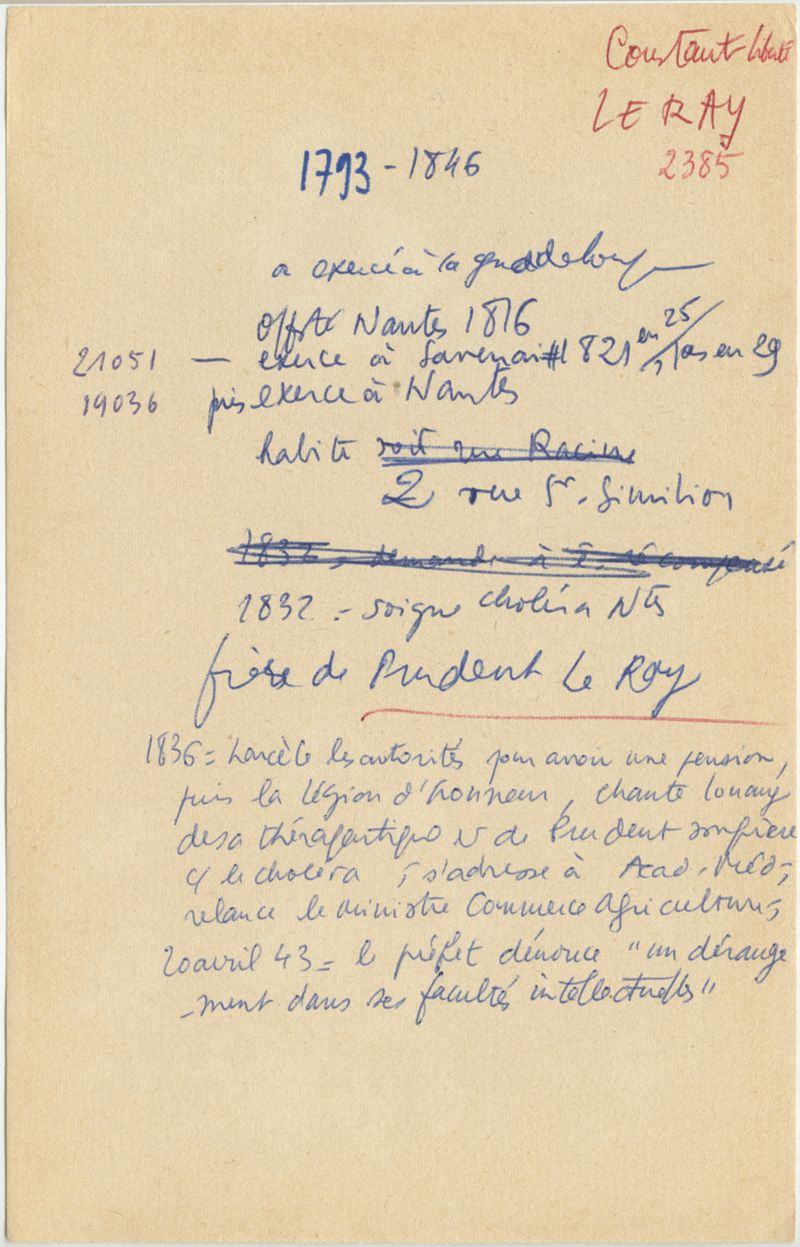 Constant-Liberté
LE RAY
2385
1793 - 1846
a exercé à la guadeloupe
offsté Nantes 1816
21051 — exerce à Savenai 1821 en 25 / pas en 29
19036 puis exerce à Nantes
habite soit rue Racine
2 rue St. Similien
1832 - demande à ê. récompensé
1832 - soigne choléra Ntes
frère de Prudent Le Ray
1836 = harcèle les autorités pour avoir une pension,
puis la légion d'honneur, chante louang
de sa thérapeutique et de Prudent son frère
c/ le choléra ; s'adresse à Acad. Méd ;
relance le ministre Commerce agriculture ;
20 avril 43 = le préfet dénonce "un dérange
-ment dans ses facultés intellectuelles"